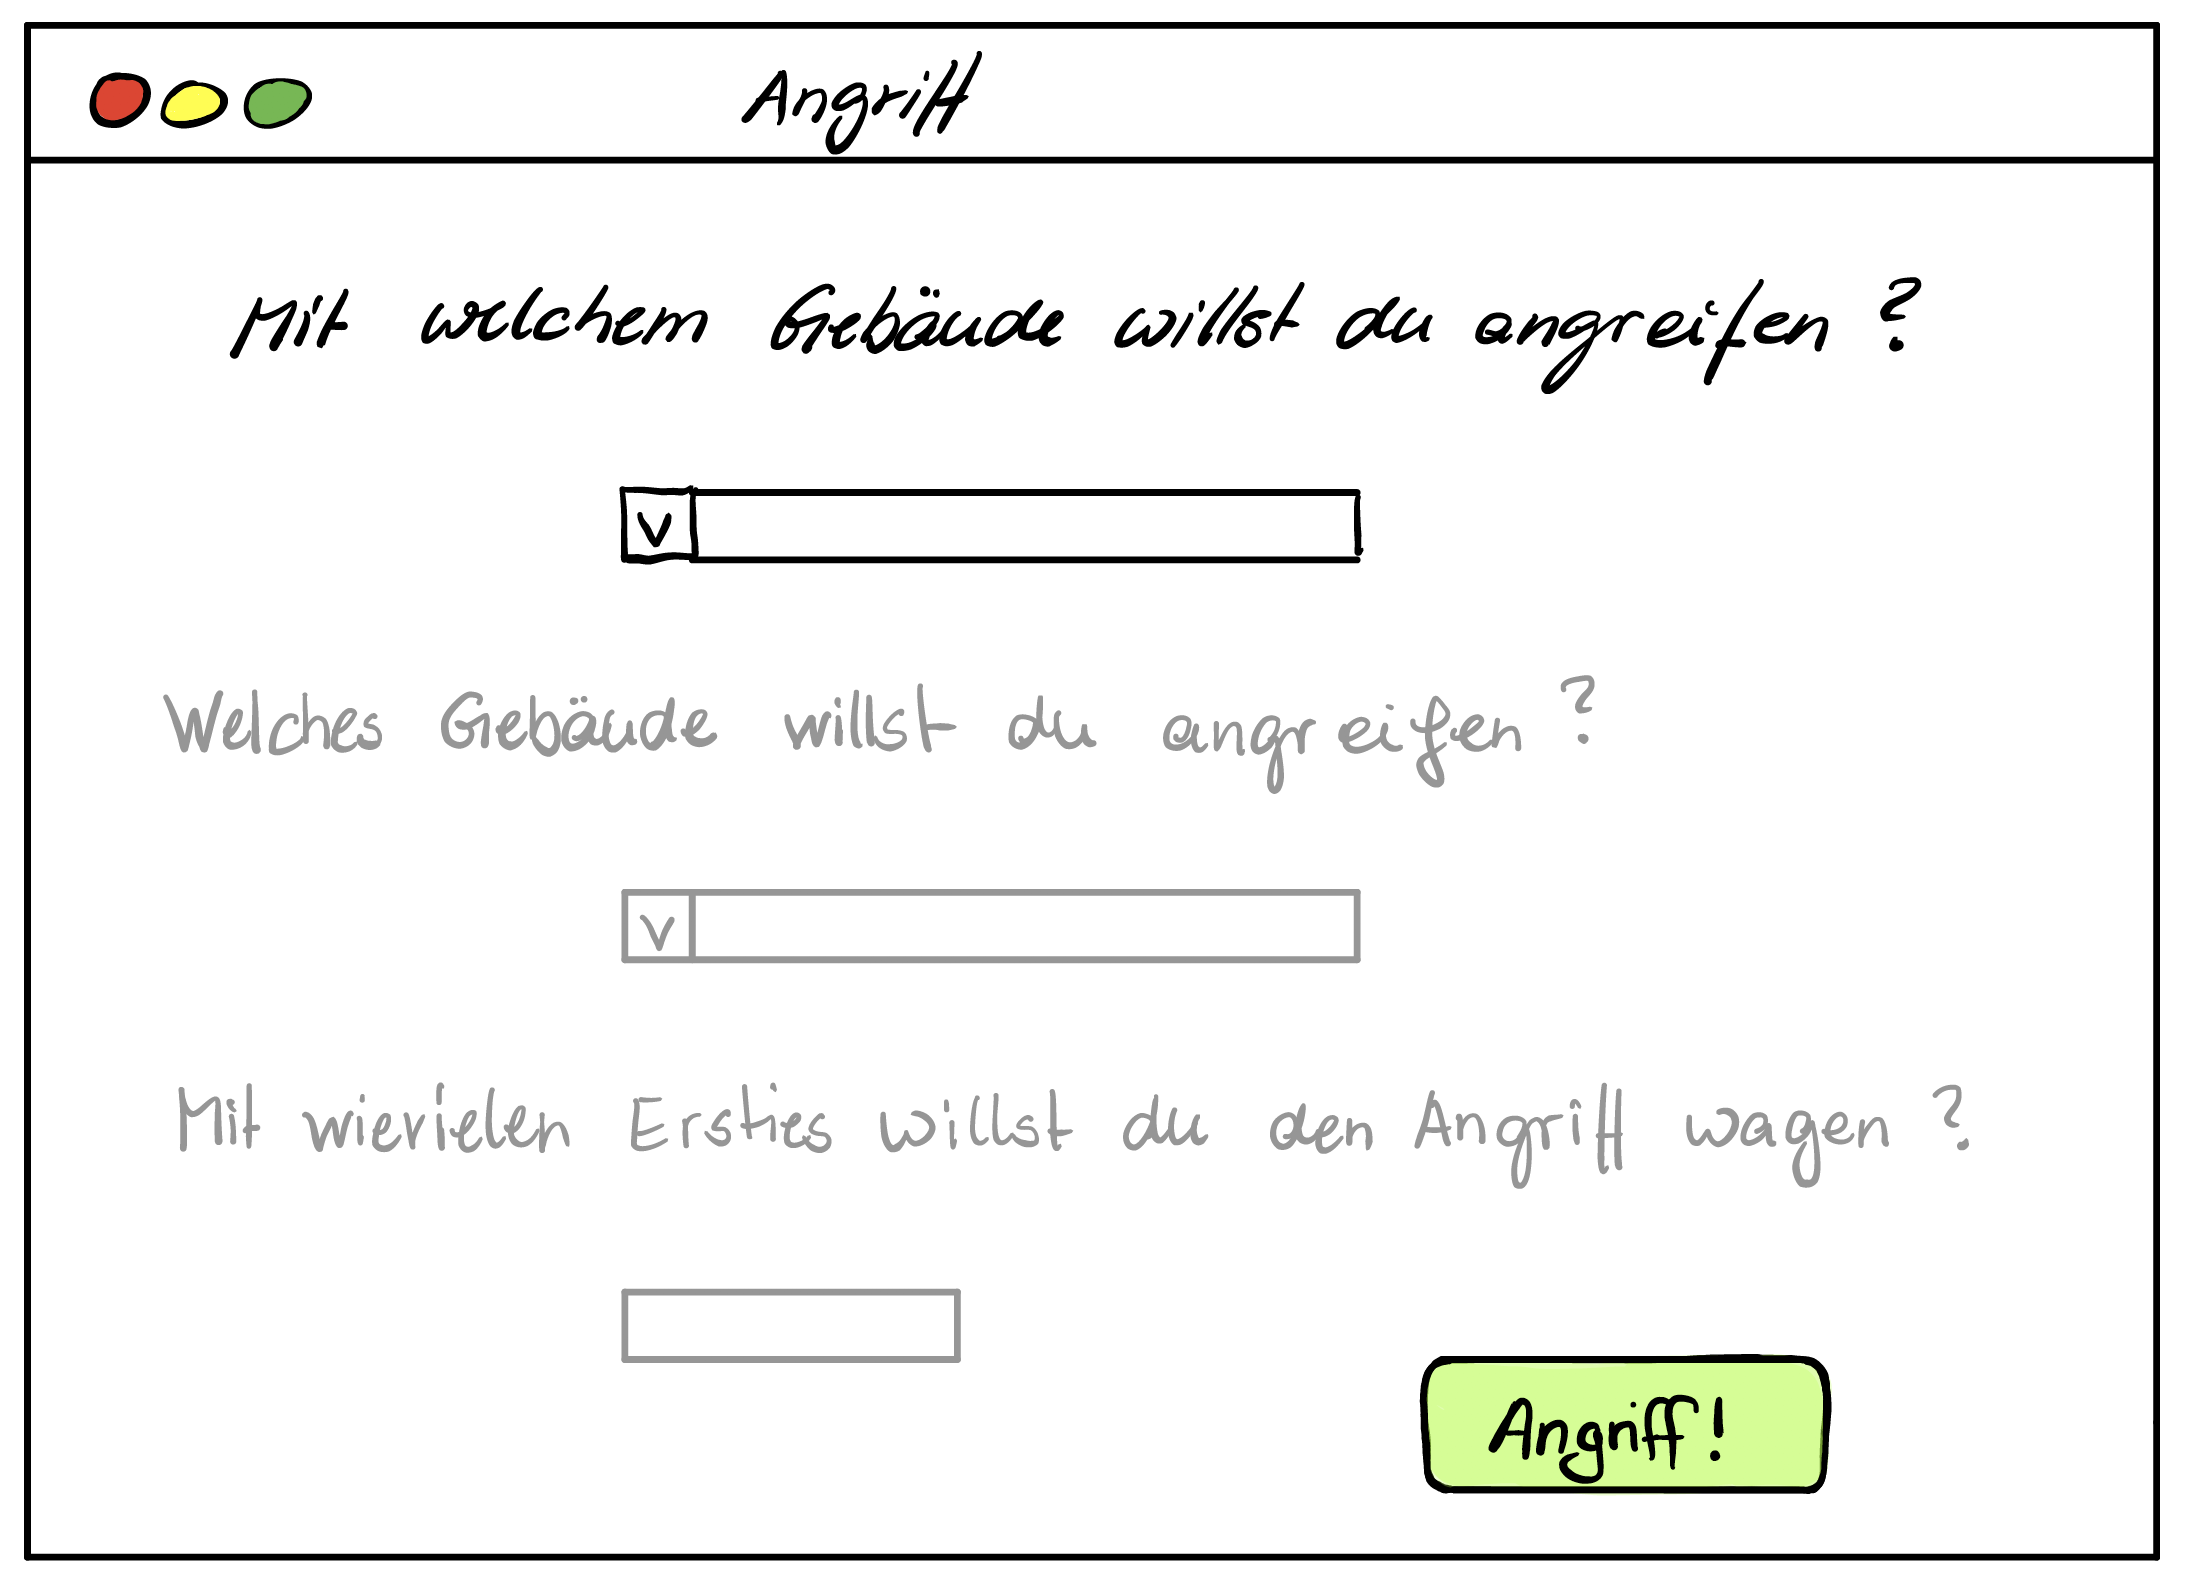 Angriff
Mit welchem Gebäude willst du angreifen ?
v
Welches Gebäude willst du angreifen ?
v
Mit wievielen Ersties willst du den Angriff wagen ?
Angriff!